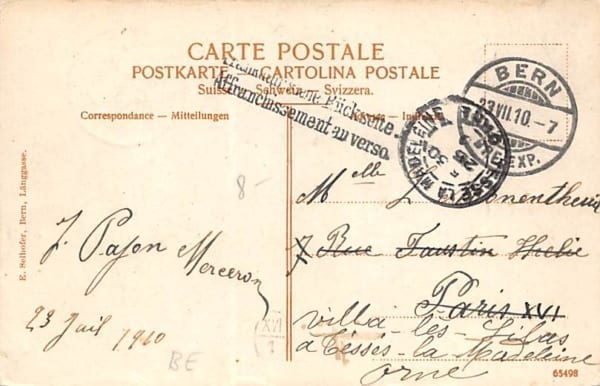 CARTE POSTALE
POSTKARTE - CARTOLINA POSTALE
Suisse. - Schweiz. - Svizzera.
Rückseite.
Affranchissement au verso.
Correspondance — Mitteilungen
E. Selhofer, Bern, Länggasse.
BERN
23.VII.10.-7
EXP.
TESSÉ LA MADELEINE
8-
Melle
7 Rue Faustin Hélie
Paris XVI
villa-les-Lilas
à Tessé-la Madeleine
Orne
J. Pajon Merceron
23 Juil 1910
XVI
1
BE
65498